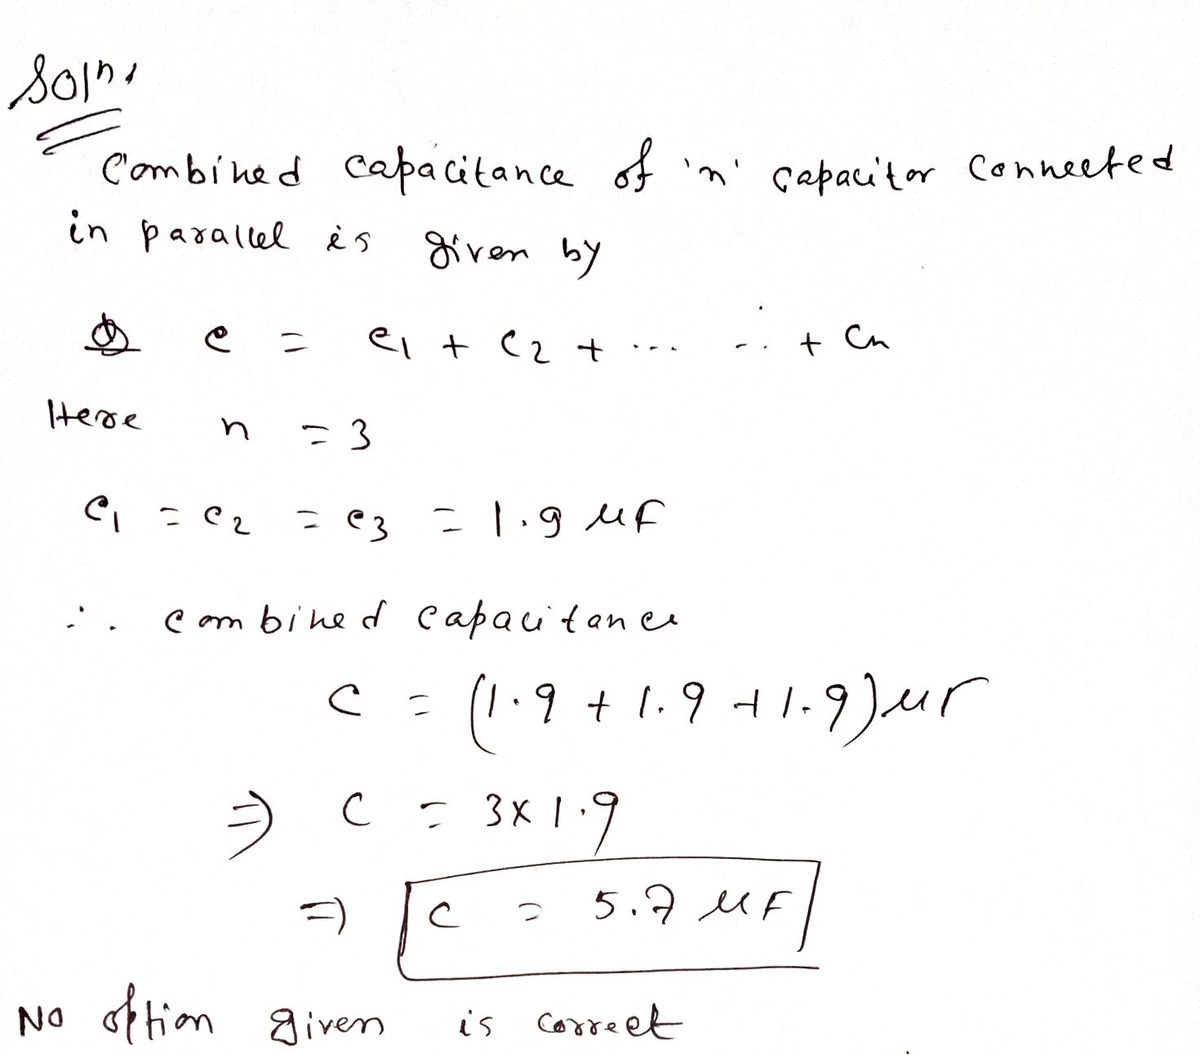 Soln.
Combined capacitance of 'n' capacitor connected
in parallel is given by
C = C1 + C2 + ... ... + Cn
Here n = 3
C1 = C2 = C3 = 1.9 μF
∴ combined capacitance
C = (1.9 + 1.9 + 1.9) μF
⇒ C = 3 x 1.9
⇒ C = 5.7 μF
NO option given is correct